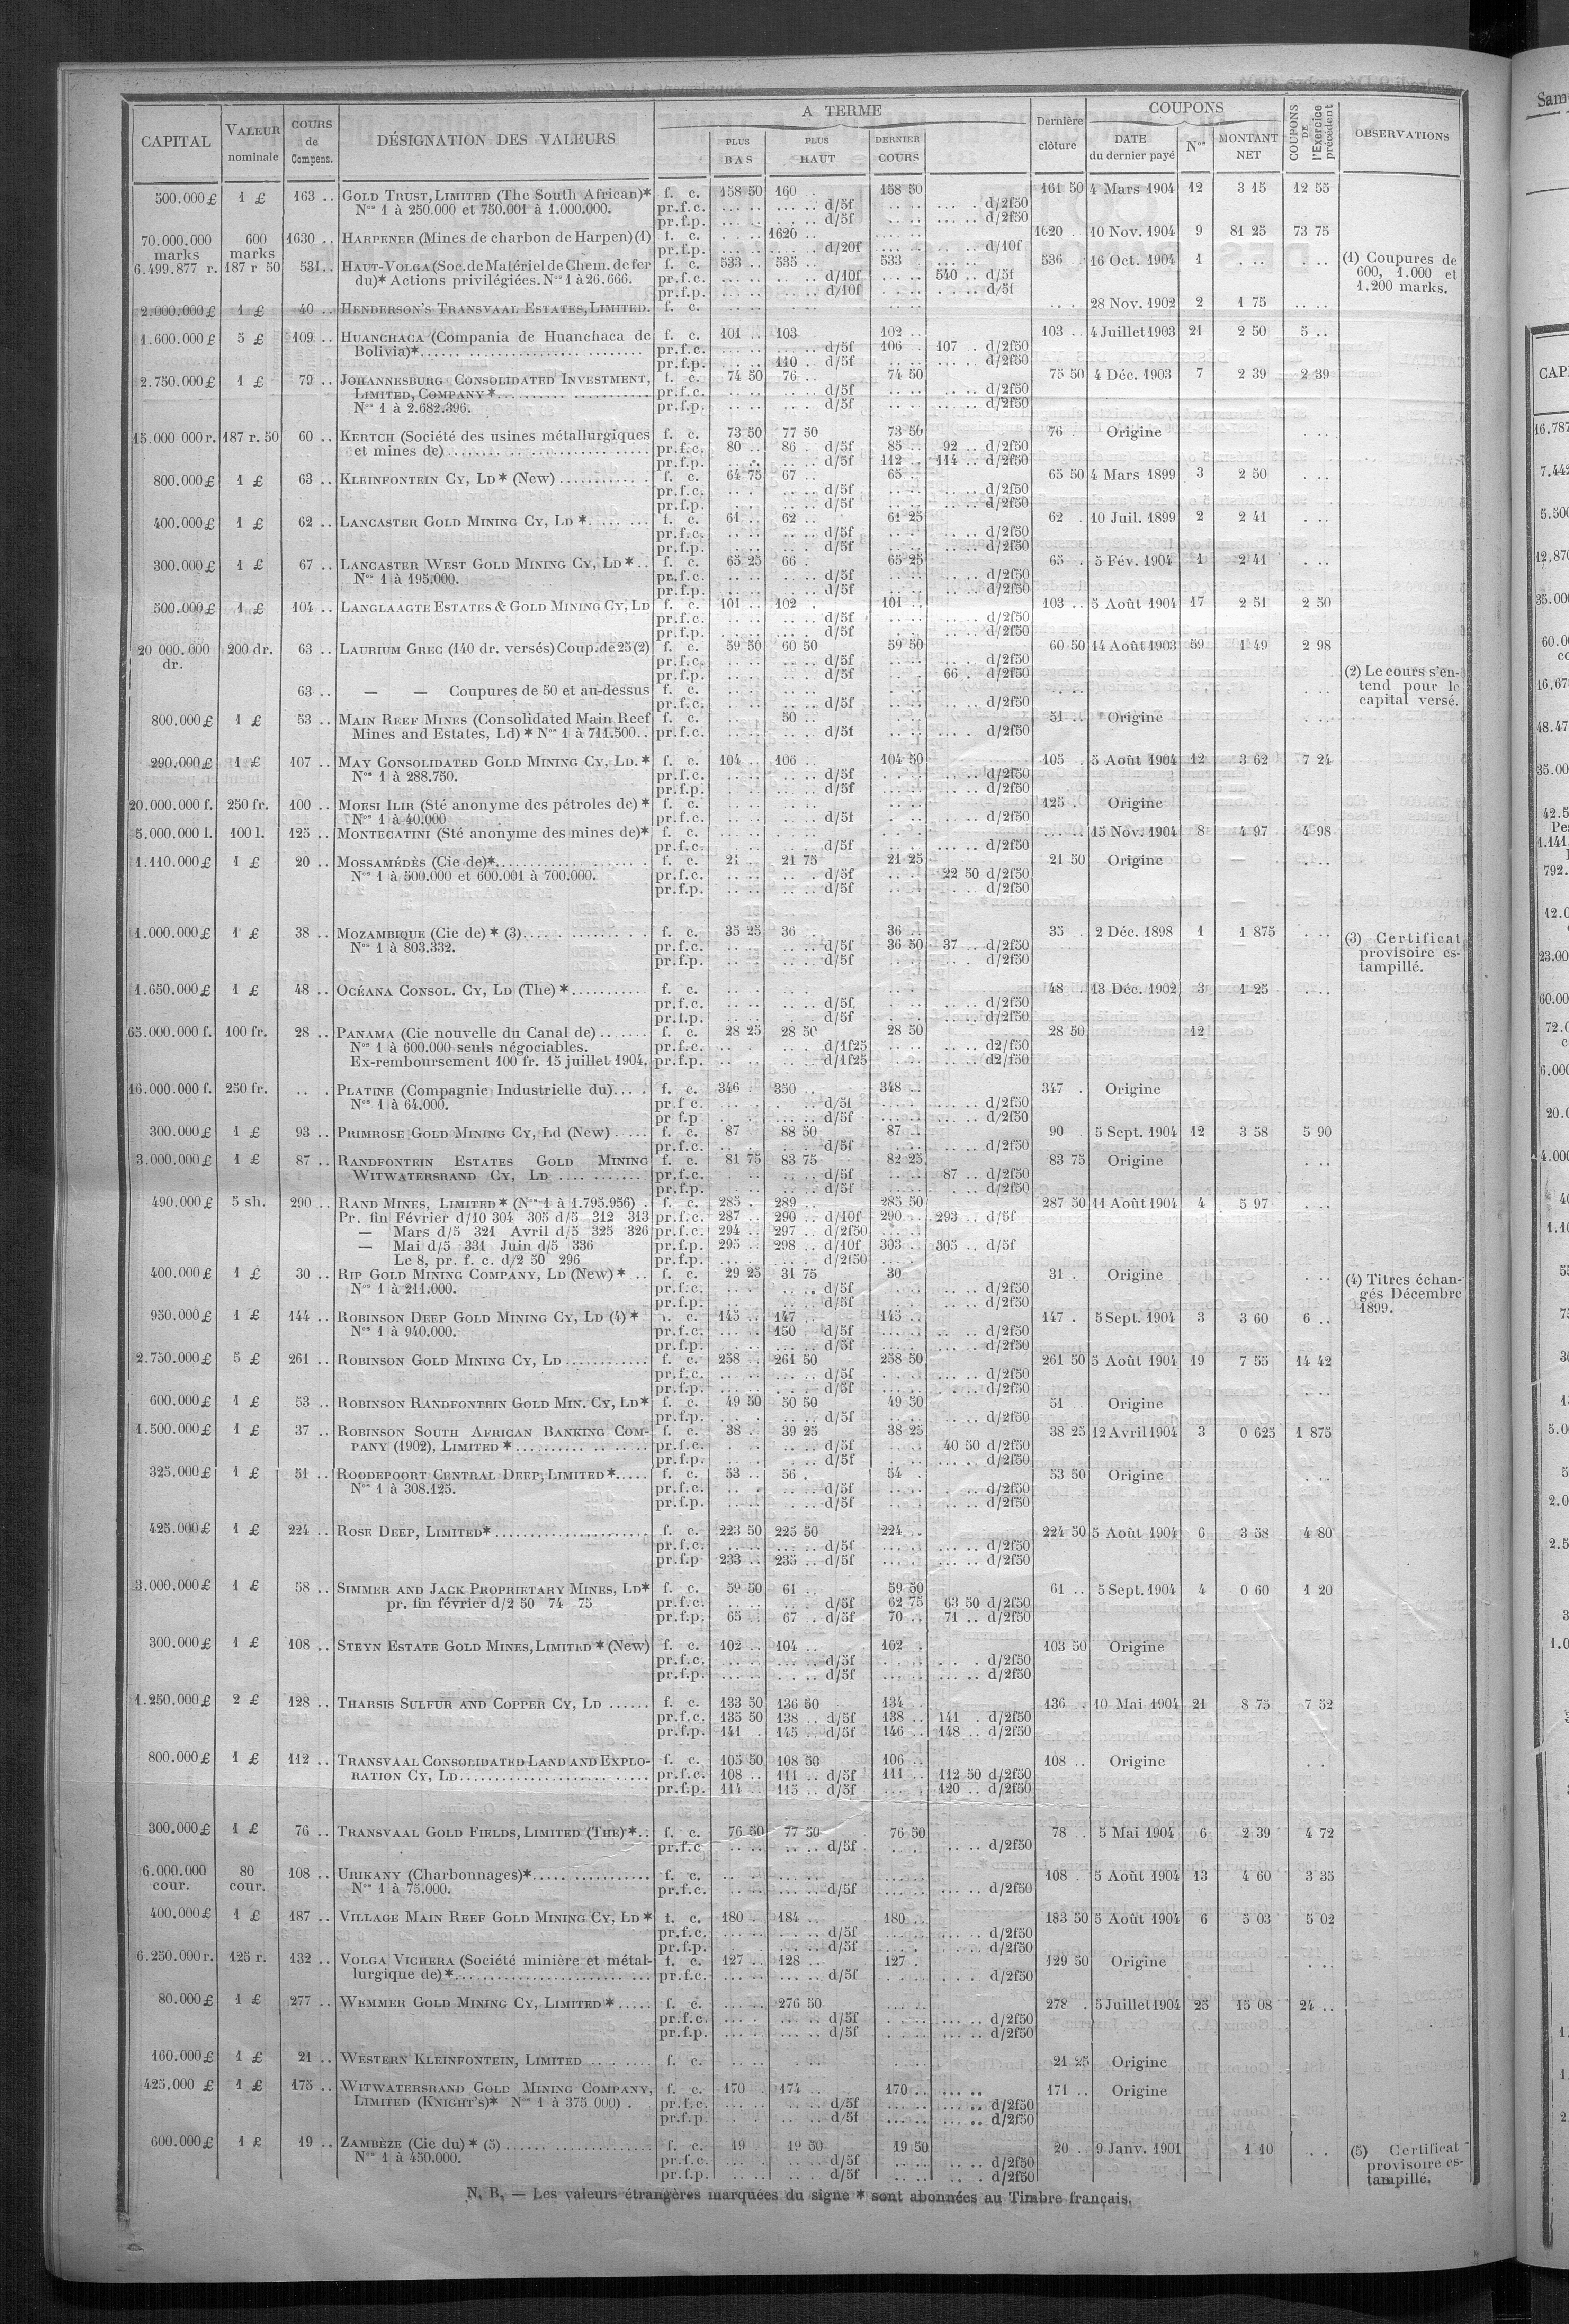 CAPITAL VALEUR nominale COURS de Compens. DÉSIGNATION DES VALEURS A TERME PLUS BAS PLUS HAUT DERNIER COURS Dernière clôture COUPONS DATE du dernier payé Nos MONTANT NET COUPONS DE l'Exercice précédent OBSERVATIONS
500.000 £ 1 £ 163 .. GOLD TRUST, LIMITED (The South African)* f. c. 158 50 160 . 158 50 161 50 4 Mars 1904 12 3 15 12 55
Nos 1 à 250.000 et 750.001 à 1.000.000. pr.f.c. d/5f d/2f50
pr.f.p. d/5f d/2f50
70.000.000 marks 600 marks 1630 .. HARPENER (Mines de charbon de Harpen) (1) f. c. 1620 .. 1620 . 10 Nov. 1904 9 81 25 73 75
pr.f.p. d/20f d/10f
6.499.877 r. 187 r 50 531 .. HAUT-VOLGA (Soc. de Matériel de Chem. de fer f. c. 533 .. 535 .. 533 536 . 16 Oct. 1904 1
du)* Actions privilégiées. Nos 1 à 26.666. pr.f.c. d/10f 540 .. d/5f
pr.f.p. d/10f d/5f
(1) Coupures de 600, 1.000 et 1.200 marks.
2.000.000 £ 1 £ 40 .. HENDERSON'S TRANSVAAL ESTATES, LIMITED. f. c. 28 Nov. 1902 2 1 75
1.600.000 £ 5 £ 109 .. HUANCHACA (Compania de Huanchaca de f. c. 101 .. 103 102 .. 103 .. 4 Juillet 1903 21 2 50 5 ..
Bolivia)* pr.f.c. d/5f 106 107 . d/2f50
pr.f.p. 110 . d/5f d/2f50
2.750.000 £ 1 £ 79 .. JOHANNESBURG CONSOLIDATED INVESTMENT, f. c. 74 50 76 .. 74 50 75 50 4 Déc. 1903 7 2 39 2 39
LIMITED, COMPANY* pr.f.c. d/5f d/2f50
Nos 1 à 2.682.396. pr.f.p. d/5f d/2f50
15.000 000 r. 187 r. 50 60 .. KERTCH (Société des usines métallurgiques f. c. 73 50 77 50 73 50 76 . Origine
et mines de) pr.f.c. 80 .. 86 . d/5f 85 .. 92 .. d/2f50
pr.f.p. d/5f 112 .. 114 .. d/2f50
800.000 £ 1 £ 63 .. KLEINFONTEIN CY, LD* (New) f. c. 64 75 67 .. 65 .. 65 50 4 Mars 1899 3 2 50
pr.f.c. d/5f d/2f50
pr.f.p. d/5f d/2f50
400.000 £ 1 £ 62 .. LANCASTER GOLD MINING CY, LD* f. c. 61 .. 62 .. 61 25 62 . 10 Juil. 1899 2 2 41
pr.f.c. d/5f d/2f50
pr.f.p. d/5f d/2f50
300.000 £ 1 £ 67 .. LANCASTER WEST GOLD MINING CY, LD* f. c. 65 25 66 . 65 25 65 . 5 Fév. 1904 1 2 41
Nos 1 à 195.000. pr.f.c. d/5f d/2f50
pr.f.p. d/5f d/2f50
500.000 £ 1 £ 104 .. LANGLAAGTE ESTATES & GOLD MINING CY, LD f. c. 101 .. 102 . 101 .. 103 .. 5 Août 1904 17 2 51 2 50
pr.f.c. d/5f d/2f50
pr.f.p. d/5f d/2f50
20 000.000 dr. 200 dr. 63 .. LAURIUM GREC (140 dr. versés) Coup. de 25 (2) f. c. 59 50 60 50 59 50 60 50 14 Août 1903 59 1 49 2 98
pr.f.c. d/5f d/2f50
pr.f.p. d/5f 66 . d/2f50
63 .. — — Coupures de 50 et au-dessus f. c.
pr.f.c. d/5f d/2f50
(2) Le cours s'entend pour le capital versé.
800.000 £ 1 £ 53 .. MAIN REEF MINES (Consolidated Main Reef f. c. 50 .. 51 .. Origine
Mines and Estates, Ld)* Nos 1 à 711.500.. pr.f.c. d/5f d/2f50
290.000 £ 1 £ 107 .. MAY CONSOLIDATED GOLD MINING CY, LD.* f. c. 104 .. 106 .. 104 50 105 . 5 Août 1904 12 3 62 7 24
Nos 1 à 288.750. pr.f.c. d/5f d/2f50
pr.f.p. d/5f d/2f50
20.000.000 f. 250 fr. 100 .. MOESI ILIR (Sté anonyme des pétroles de)* f. c. 125 . Origine
Nos 1 à 40.000. pr.f.c. d/5f d/2f50
5.000.000 l. 100 l. 125 .. MONTECATINI (Sté anonyme des mines de)* f. c. 15 Nov. 1904 8 4 97 4 98
pr.f.c. d/5f d/2f50
1.110.000 £ 1 £ 20 .. MOSSAMÉDÈS (Cie de)* f. c. 21 .. 21 75 21 25 21 50 Origine —
Nos 1 à 500.000 et 600.001 à 700.000. pr.f.c. d/5f 22 50 d/2f50
pr.f.p. d/5f d/2f50
1.000.000 £ 1 £ 38 .. MOZAMBIQUE (Cie de)* (3) f. c. 35 25 36 . 36 .. 35 . 2 Déc. 1898 1 1 875
Nos 1 à 803.332. pr.f.c. d/5f 36 50 37 .. d/2f50
pr.f.p. d/5f d/2f50
(3) Certificat provisoire estampillé.
1.650.000 £ 1 £ 48 .. OCÉANA CONSOL. CY, LD (The)* f. c. 48 . 13 Déc. 1902 3 1 25
pr.f.c. d/5f d/2f50
pr.f.p. d/5f d/2f50
65.000.000 f. 100 fr. 28 .. PANAMA (Cie nouvelle du Canal de) f. c. 28 25 28 50 28 50 28 50 12
Nos 1 à 600.000 seuls négociables. pr.f.c. d/1f25 d2/f50
Ex-remboursement 100 fr. 15 juillet 1904. pr.f.p. d/1f25 d2/f50
16.000.000 f. 250 fr. .. . PLATINE (Compagnie Industrielle du) f. c. 346 . 350 .. 348 .. 347 . Origine
Nos 1 à 64.000. pr f c. d/5f d/2f50
pr f.p d/5f d/2f50
300.000 £ 1 £ 93 .. PRIMROSE GOLD MINING CY, Ld (New) f. c. 87 . 88 50 87 .. 90 5 Sept. 1904 12 3 58 5 90
pr.f.c. d/5f d/2f50
3.000.000 £ 1 £ 87 .. RANDFONTEIN ESTATES GOLD MINING f. c. 81 75 83 75 82 25 83 75 Origine
WITWATERSRAND CY, LD pr.f.c. d/5f 87 .. d/2f50
pr.f.p. d/5f d/2f50
490.000 £ 5 sh. 290 .. RAND MINES, LIMITED* (Nos 1 à 1.795.956) . f. c. 285 . 289 .. 285 50 287 50 11 Août 1904 4 5 97
Pr. fin Février d/10 304 305 d/5 312 313 pr.f.c. 287 .. 290 .. d/10f 290 .. 293 .. d/5f
— Mars d/5 321 Avril d/5 325 326 pr.f.c. 294 .. 297 .. d/2f50
— Mai d/5 331 Juin d/5 336 pr.f.p. 295 .. 298 .. d/10f 303 .. 305 .. d/5f
Le 8, pr. f. c. d/2 50 296 pr.f.p. d/2f50
400.000 £ 1 £ 30 .. RIP GOLD MINING COMPANY, LD (New)* f. c. 29 25 31 75 30 31 . Origine
Nos 1 à 211.000. pr.f.c. d/5f d/2f50
pr.f.p. d/5f d/2f50
(4) Titres échangés Décembre 1899.
950.000 £ 1 £ 144 .. ROBINSON DEEP GOLD MINING CY, LD (4)* f. c. 145 .. 147 .. 145 .. 147 . 5 Sept. 1904 3 3 60 6 ..
Nos 1 à 940.000. pr.f.c. 150 d/5f d/2f50
pr.f.p. d/5f d/2f50
2.750.000 £ 5 £ 261 .. ROBINSON GOLD MINING CY, LD f. c. 258 .. 261 50 258 50 261 50 5 Août 1904 19 7 55 14 42
pr.f.c. d/5f d/2f50
pr.f.p. d/5f d/2f50
600.000 £ 1 £ 53 .. ROBINSON RANDFONTEIN GOLD MIN. CY, LD* f. c. 49 50 50 50 49 50 51 Origine
pr.f.p. d/5f d/2f50
1.500.000 £ 1 £ 37 .. ROBINSON SOUTH AFRICAN BANKING COM- f. c. 38 .. 39 25 38 25 38 25 12 Avril 1904 3 0 625 1 875
PANY (1902), LIMITED* pr.f.c. d/5f 40 50 d/2f50
pr.f.p. d/5f d/2f50
325.000 £ 1 £ 51 .. ROODEPOORT CENTRAL DEEP, LIMITED* f. c. 53 .. 56 . 54 . 53 50 Origine
Nos 1 à 308.125. pr.f.c. d/5f d/2f50
pr.f.p. d/5f d/2f50
425.000 £ 1 £ 224 .. ROSE DEEP, LIMITED* f. c. 223 50 225 50 224 .. 224 50 5 Août 1904 6 3 58 4 80
pr.f.c. d/5f d/2f50
pr.f.p 233 .. 235 .. d/5f d/2f50
3.000.000 £ 1 £ 58 .. SIMMER AND JACK PROPRIETARY MINES, LD* f. c. 59 50 61 .. 59 50 61 .. 5 Sept. 1904 4 0 60 1 20
pr. fin février d/2 50 74 75 pr.f.c. d/5f 62 75 63 50 d/2f50
pr.f.p. 65 .. 67 . d/5f 70 .. 71 .. d/2f50
300.000 £ 1 £ 108 .. STEYN ESTATE GOLD MINES, LIMITED* (New) f. c. 102 .. 104 .. 102 . 103 50 Origine
pr.f.c. d/5f d/2f50
pr.f.p. d/5f d/2f50
1.250.000 £ 2 £ 128 .. THARSIS SULFUR AND COPPER CY, LD f. c. 133 50 136 50 134 136 . 10 Mai 1904 21 8 75 7 52
pr.f.c. 135 50 138 .. d/5f 138 .. 141 . d/2f50
pr.f.p. 141 . 145 .. d/5f 146 .. 148 .. d/2f50
800.000 £ 1 £ 112 .. TRANSVAAL CONSOLIDATED LAND AND EXPLO- f. c. 105 50 108 50 106 .. 108 .. Origine
RATION CY, LD pr.f.c. 108 .. 111 .. d/5f 111 .. 112 50 d/2f50
pr.f.p. 114 .. 115 .. d/5f 120 .. d/2f50
300.000 £ 1 £ 76 .. TRANSVAAL GOLD FIELDS, LIMITED (THE)* f. c. 76 50 77 50 76 50 78 .. 5 Mai 1904 6 2 39 4 72
pr.f.c d/5f d/2f50
6.000.000 cour. 80 cour. 108 .. URIKANY (Charbonnages)* f. c. 108 . 5 Août 1904 13 4 60 3 35
Nos 1 à 75.000. pr.f.c. d/5f d/2f50
400.000 £ 1 £ 187 .. VILLAGE MAIN REEF GOLD MINING CY, LD* f. c. 180 . 184 .. 180 .. 183 50 5 Août 1904 6 5 03 5 02
pr.f.c. d/5f d/2f50
pr.f.p. d/5f d/2f50
6.250.000 r. 125 r. 132 .. VOLGA VICHERA (Société minière et métal- f. c. 127 .. 128 .. 127 . 129 50 Origine
lurgique de)* pr.f.c. d/5f d/2f50
80.000 £ 1 £ 277 .. WEMMER GOLD MINING CY, LIMITED* f. c. 276 50 278 . 5 Juillet 1904 25 15 08 24 ..
pr.f.c. d/5f d/2f50
pr.f.p. d/5f d/2f50
160.000 £ 1 £ 21 .. WESTERN KLEINFONTEIN, LIMITED f. c. 21 25 Origine
425.000 £ 1 £ 175 .. WITWATERSRAND GOLD MINING COMPANY, f. c. 170 . 174 .. 170 .. 171 .. Origine
LIMITED (KNIGHT'S)* Nos 1 à 375 000) . pr.f.c. d/5f d/2f50
pr.f.p. d/5f d/2f50
600.000 £ 1 £ 19 .. ZAMBÈZE (Cie du)* (5) f. c. 19 19 50 19 50 20 . 9 Janv. 1901 1 10
Nos 1 à 450.000. pr.f.c. d/5f d/2f50
pr.f.p. d/5f d/2f50
(5) Certificat provisoire estampillé.
N. B. — Les valeurs étrangères marquées du signe * sont abonnées au Timbre français.